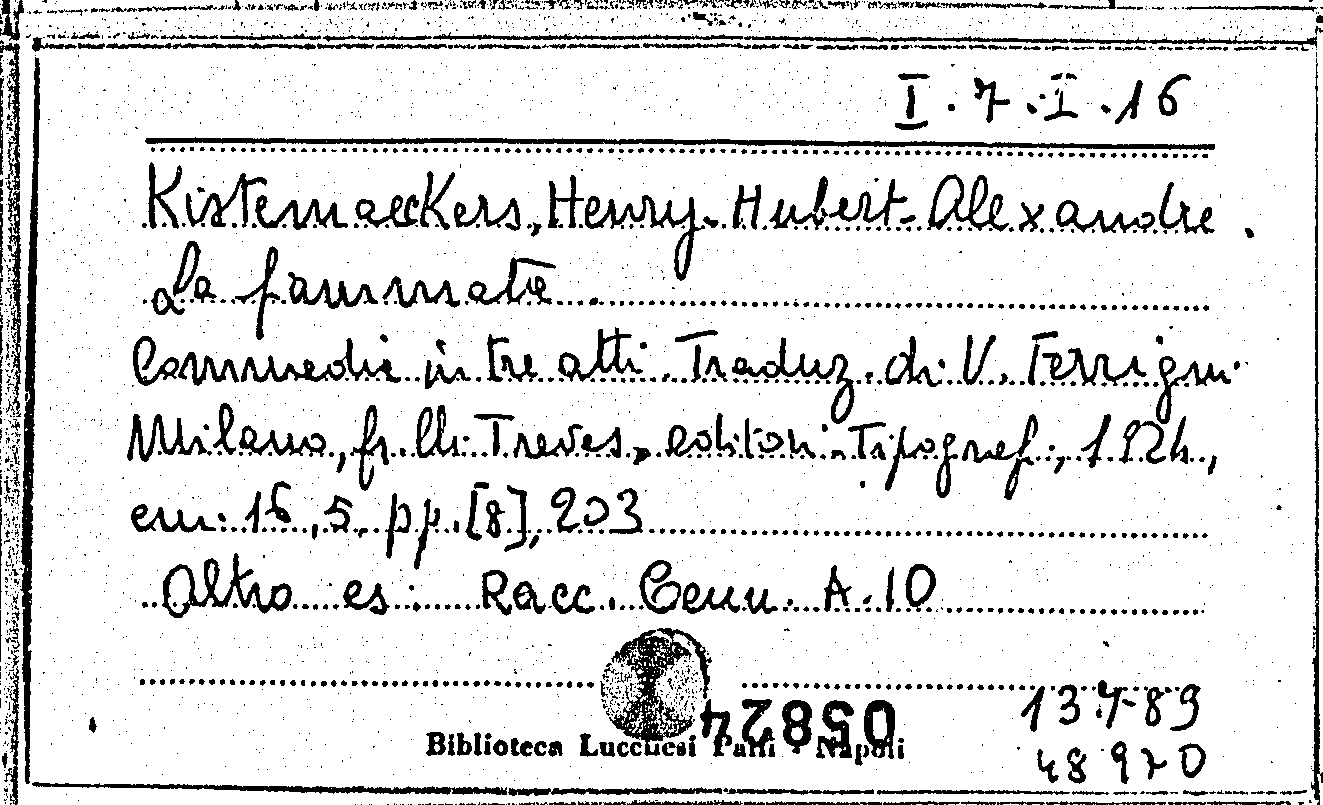 I.7.I.16
Kistemaeckers, Henry-Hubert-Alexandre.
La fiammata.
Commedia in tre atti. Traduz. di V. Ferrigni.
Milano, fr.lli Treves, editori-Tipograf., 1924,
cm. 16,5, pp. [8], 203
Altro es: Racc. Cenn. A.10
Biblioteca Lucchesi Palli - Napoli
05824
13.7.89
48970